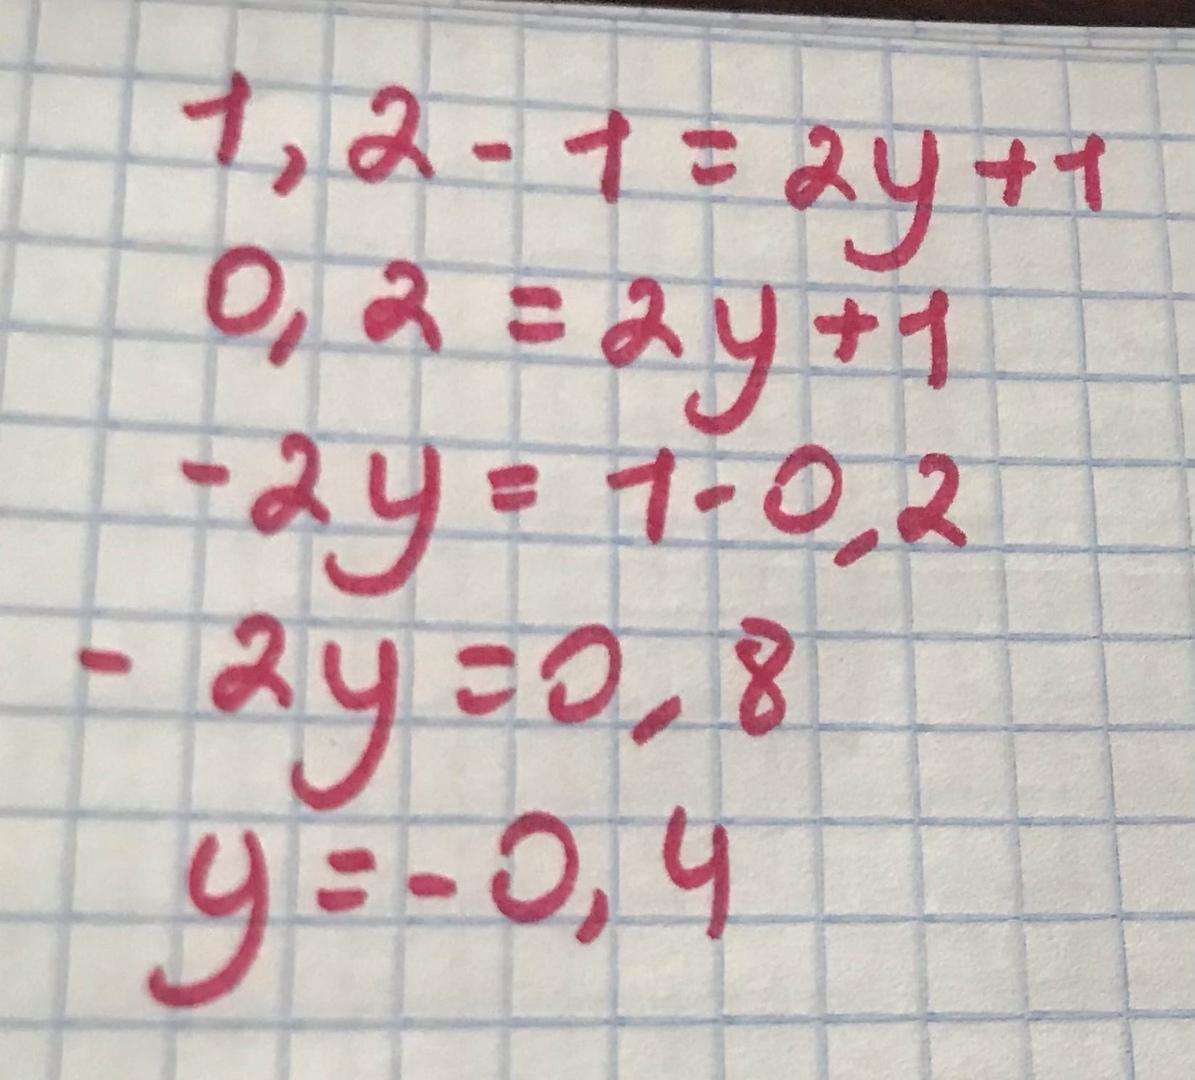 1,2-1=2y+1
0,2=2y+1
-2y=1-0,2
-2y=0,8
y=-0,4